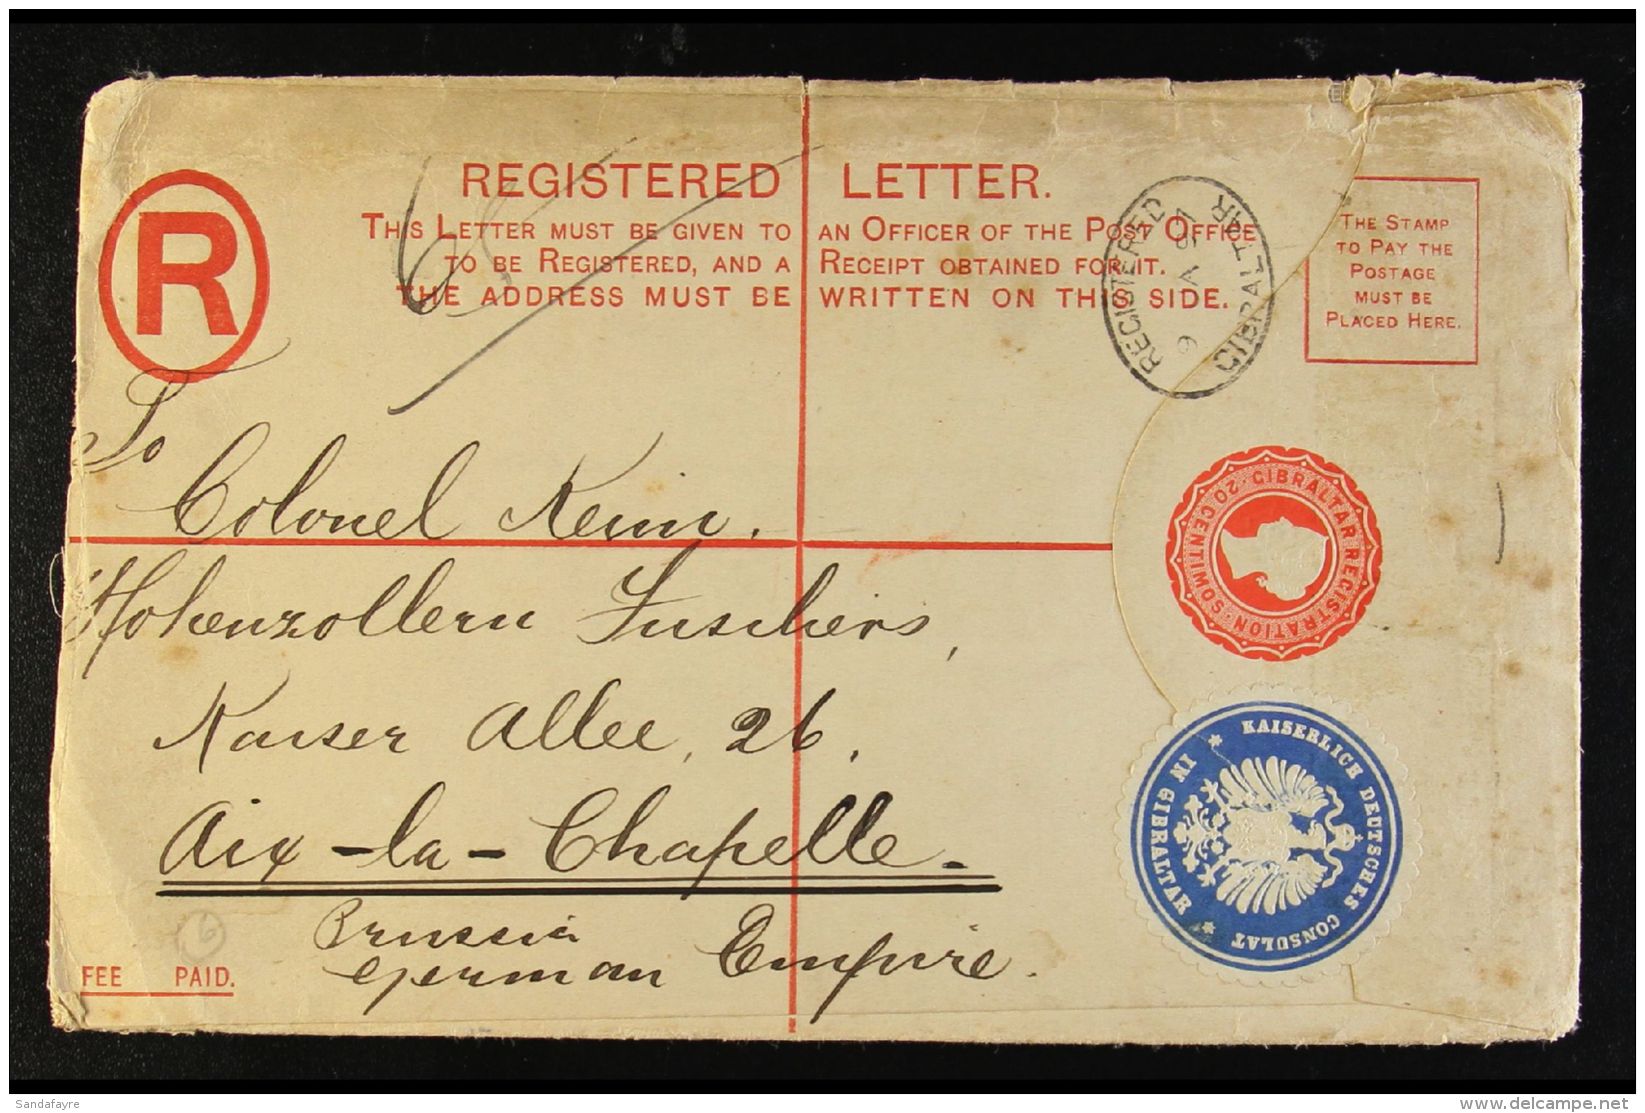 REGISTERED LETTER.
THIS LETTER MUST BE GIVEN TO AN OFFICER OF THE POST OFFICE
TO BE REGISTERED, AND A RECEIPT OBTAINED FOR IT.
THE ADDRESS MUST BE WRITTEN ON THIS SIDE.
R
THE STAMP
TO PAY THE
POSTAGE
MUST BE
PLACED HERE.
REGISTERED
GIBRALTAR
To
Colonel Keim.
Hohenzollern
Kaiser Allee, 26,
Aix-la-Chapelle.
Prussia
German Empire.
GIBRALTAR REGISTRATION · 20 CENTIMOS ·
KAISERLICH DEUTSCHES CONSULAT
IN GIBRALTAR
6
FEE PAID.
Sandafayre
delcampe.net